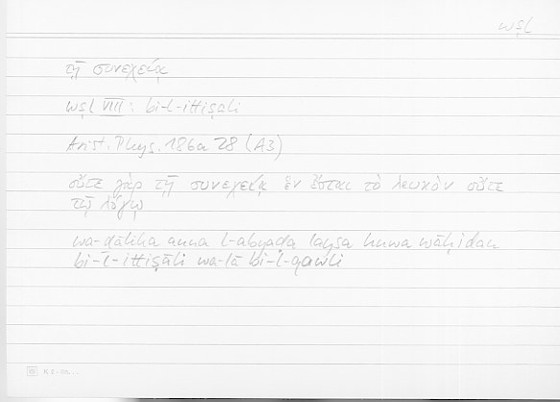 wṣl
τῇ συνεχείᾳ
wṣl VIII: bi-l-ittiṣāli
Arist. Phys. 186a 28 (A3)
οὔτε γὰρ τῇ συνεχείᾳ ἓν ἔσται τὸ λευκὸν οὔτε
τῷ λόγῳ
wa-ḏālika anna l-abyaḍa laysa huwa wāḥidan
bi-l-ittiṣāli wa-lā bi-l-qawli